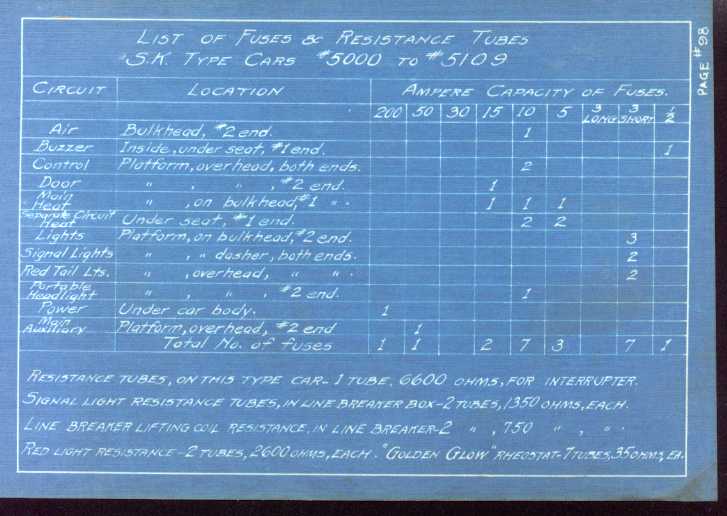 LIST OF FUSES & RESISTANCE TUBES
S.K TYPE CARS #5000 TO #5109
PAGE #98
CIRCUIT LOCATION AMPERE CAPACITY OF FUSES.
200 50 30 15 10 5 3 LONG 3 SHORT 1/2
Air Bulkhead, #2 end. 1
Buzzer Inside, under seat, #1 end. 1
Control Platform, overhead, both ends. 2
Door " , " , #2 end. 1
Main Heat " , on bulkhead, #1 " . 1 1 1
Separate Circuit Heat Under seat, #1 end. 2 2
Lights Platform, on bulkhead, #2 end. 3
Signal Lights " , " dasher, both ends. 2
Red Tail Lts. " , overhead, " " . 2
Portable Headlight " , " , #2 end. 1
Power Under car body. 1
Main Auxiliary Platform, overhead, #2 end 1
Total No. of fuses 1 1 2 7 3 7 1
RESISTANCE TUBES, ON THIS TYPE CAR - 1 TUBE, 6600 OHMS, FOR INTERRUPTER.
SIGNAL LIGHT RESISTANCE TUBES, IN LINE BREAKER BOX - 2 TUBES, 1350 OHMS, EACH.
LINE BREAKER LIFTING COIL RESISTANCE, IN LINE BREAKER - 2 " , 750 " , " .
RED LIGHT RESISTANCE - 2 TUBES, 2600 OHMS, EACH. "GOLDEN GLOW" RHEOSTAT - 7 TUBES, 35 OHMS, EA.